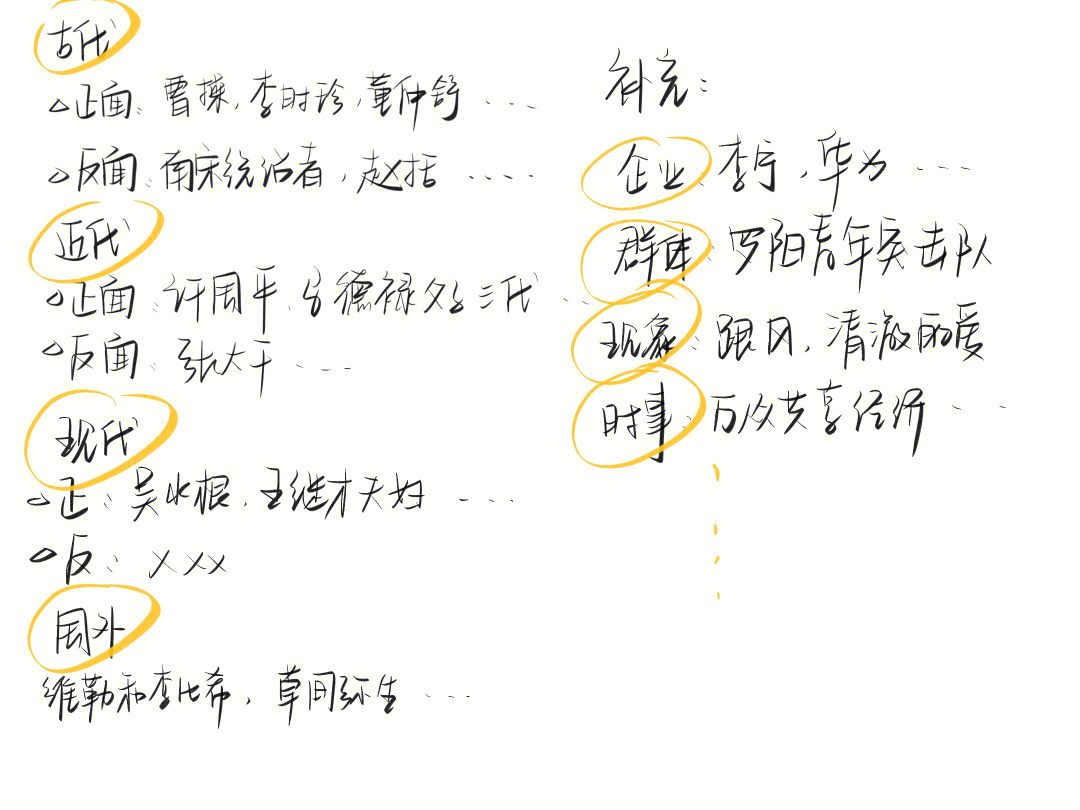 古代
正面：曹操，李时珍，董仲舒....
反面：南宋统治者，赵括....
近代
正面：许周平、马德禄父子三代...
反面：张大千...
现代
正：吴水根，王继才夫妇....
反：xxx
国外
维勒和李比希，草间弥生...
补充：
企业：李宁，华为...
群体：罗阳青年突击队
现象：跟风，清澈的爱
时事：万众共享经济...